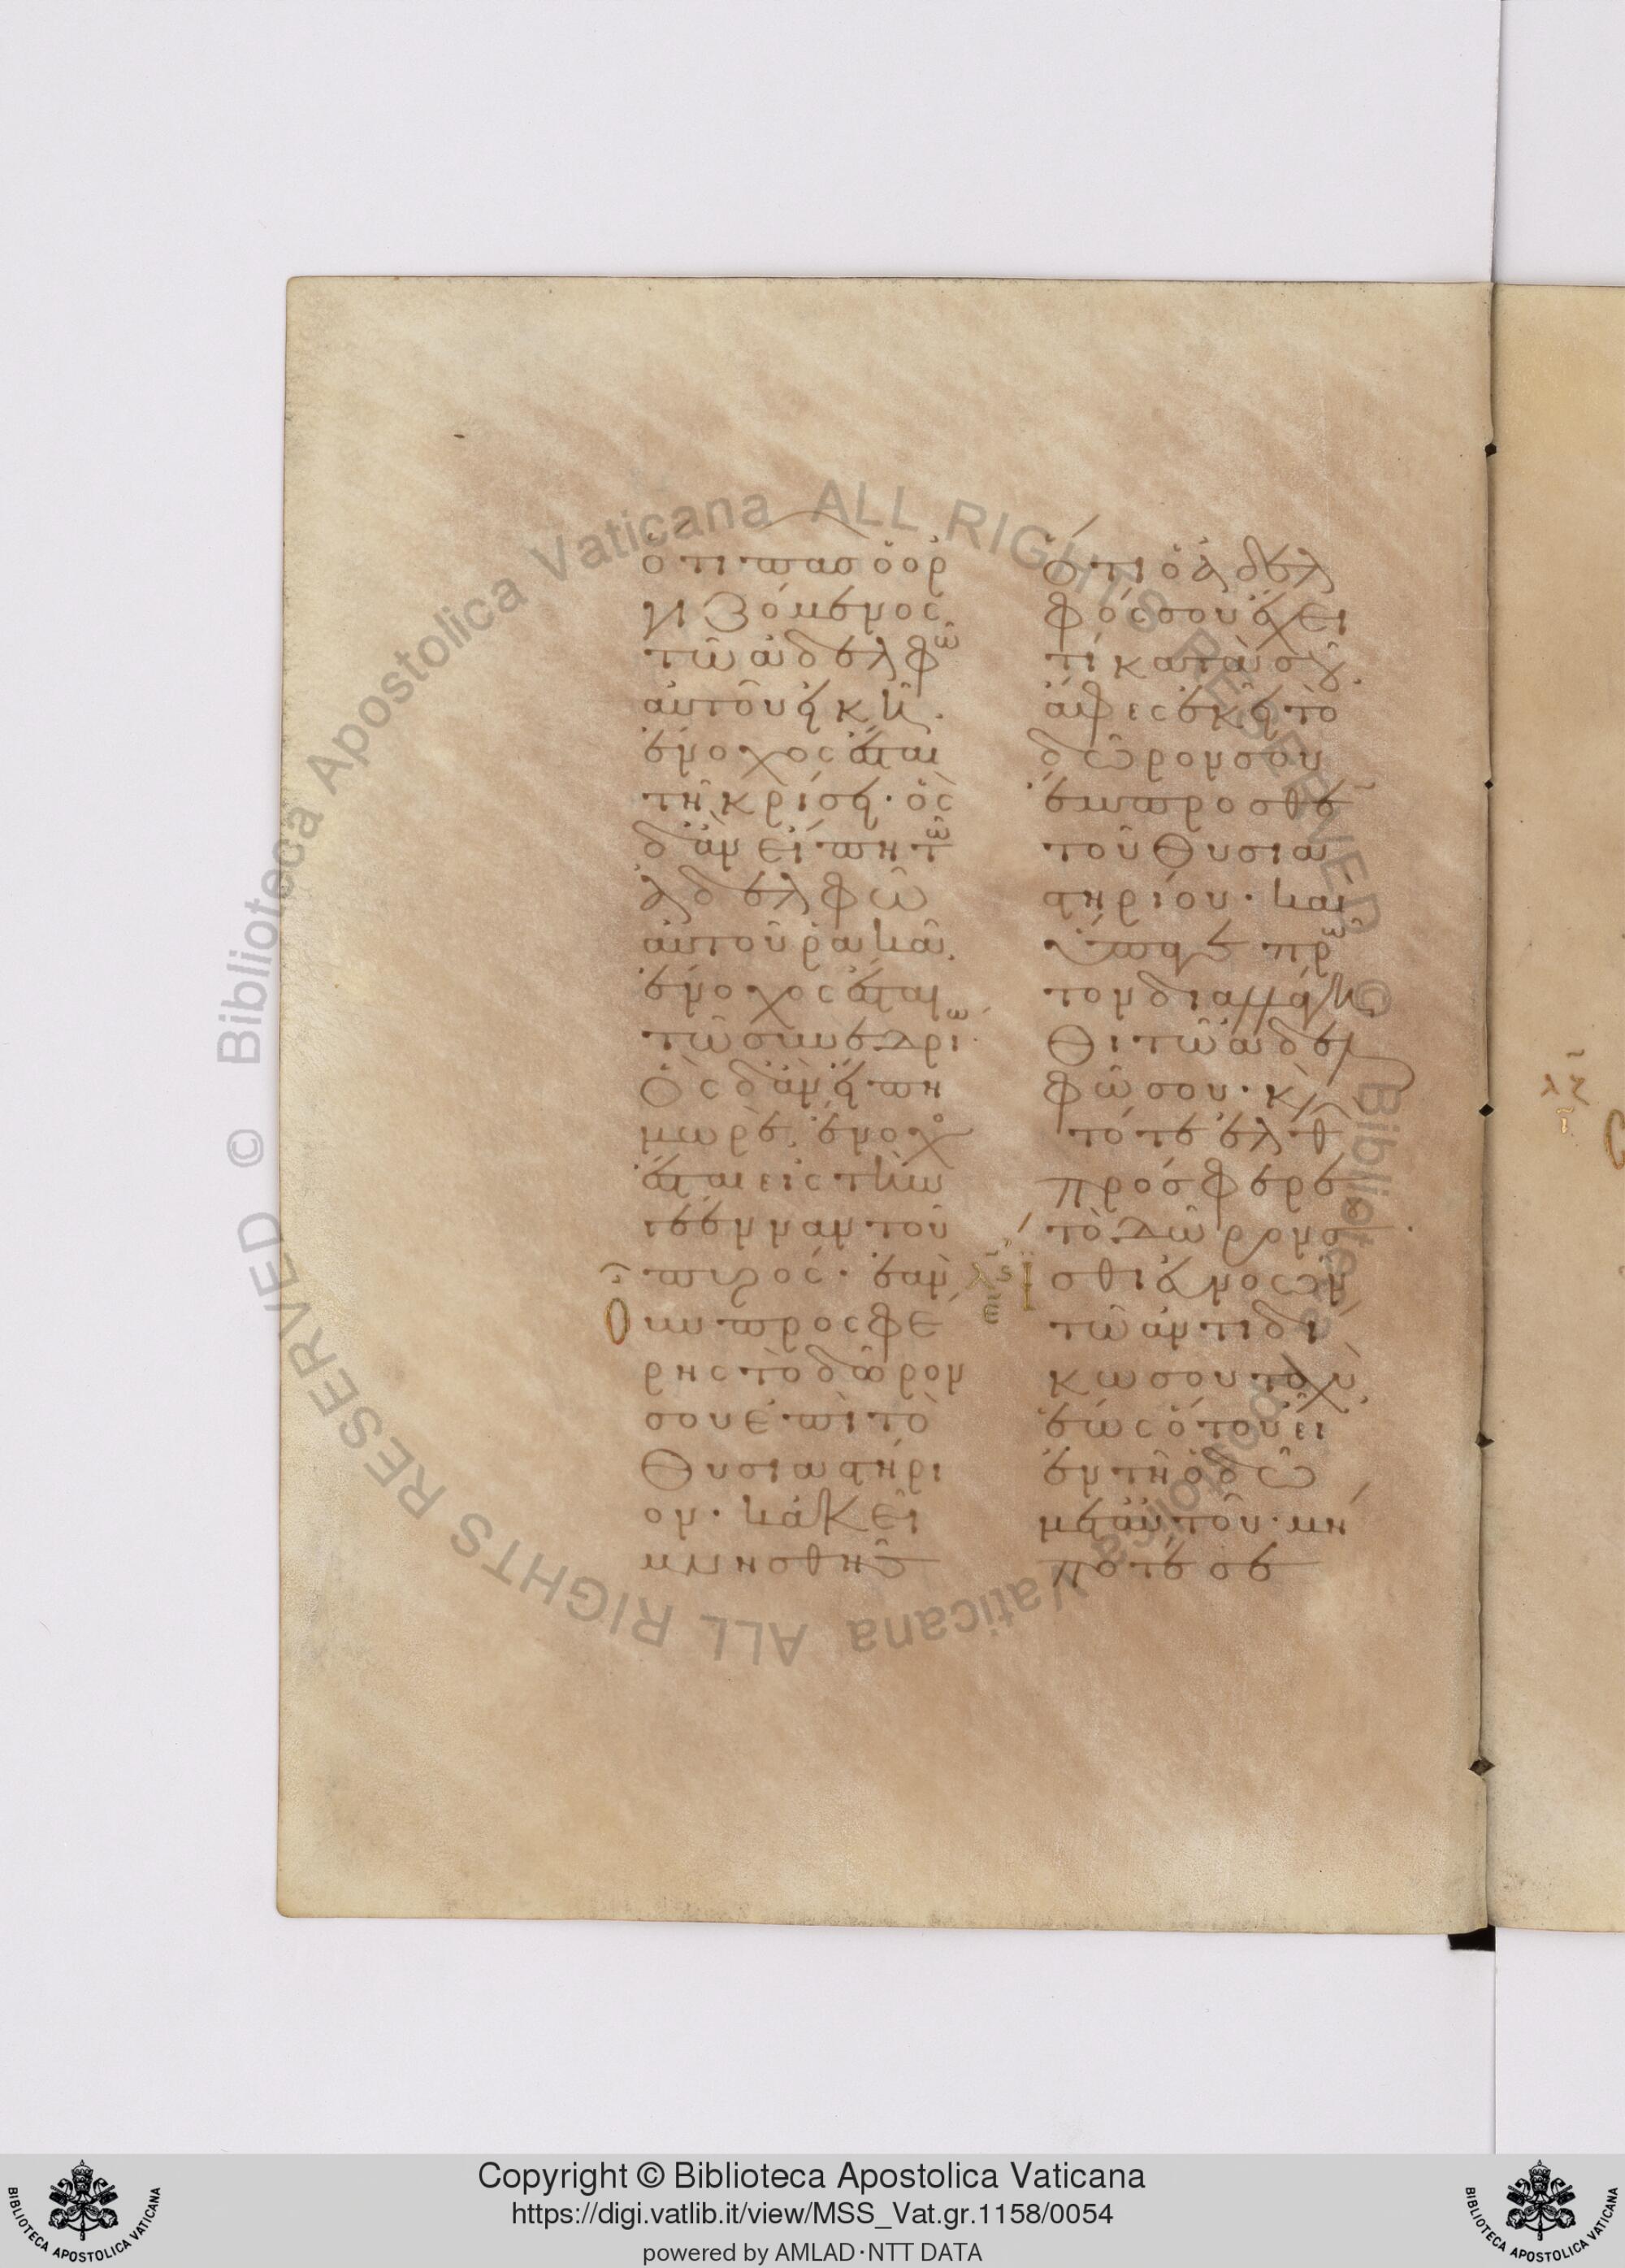 ὅτι πᾶσ ὁ ὀρ
γιζόμενος
τῶ ἀδελφῶ
αὐτοῦ εἰκῆ.
ἔνοχος ἔσται
τῆ κρίσει· ὃς
δ' ἂν εἴπη τῶ
ἀδελφῶ
αὐτοῦ ῥακᾶ.
ἔνοχος ἔσται
τῶ συνεδρίω·
Ὃς δ' ἂν εἴπη
μωρὲ. ἔνοχος
ἔσται εἰς τὴν
γέενναν τοῦ
πυρός· ἐὰν
οὖν προσφέ
ρης τὸ δῶρον
σου ἐπὶ τὸ
θυσιαστήρι
ον· κἀκεῖ
μνησθῆς
ὅτι ὁ ἀδελ
φός σου ἔχει
τὶ κατὰ σοῦ.
ἄφες ἐκεῖ τὸ
δῶρον σου
ἔμπροσθεν
τοῦ θυσια
στηρίου· καὶ
ὕπαγε πρῶ
τον διαλλάγη
θι τῶ ἀδελ
φῶ σου· κὶ
τότε ἐλθὼν
πρόσφερε
τὸ δῶρον σου·
ἴσθι εὐνοῶν
τῶ ἀντιδί
κω σου ταχὺ.
ἕως ὅτου εἶ
ἐν τῆ ὁδῶ
μετ' αὐτοῦ· μή
ποτέ σε
λς
ε
λζ
Copyright © Biblioteca Apostolica Vaticana
https://digi.vatlib.it/view/MSS_Vat.gr.1158/0054
powered by AMLAD·NTT DATA
Biblioteca Apostolica Vaticana ALL RIGHTS RESERVED ©
Biblioteca Apostolica Vaticana ALL RIGHTS RESERVED ©
BIBLIOTECA APOSTOLICA VATICANA
BIBLIOTECA APOSTOLICA VATICANA